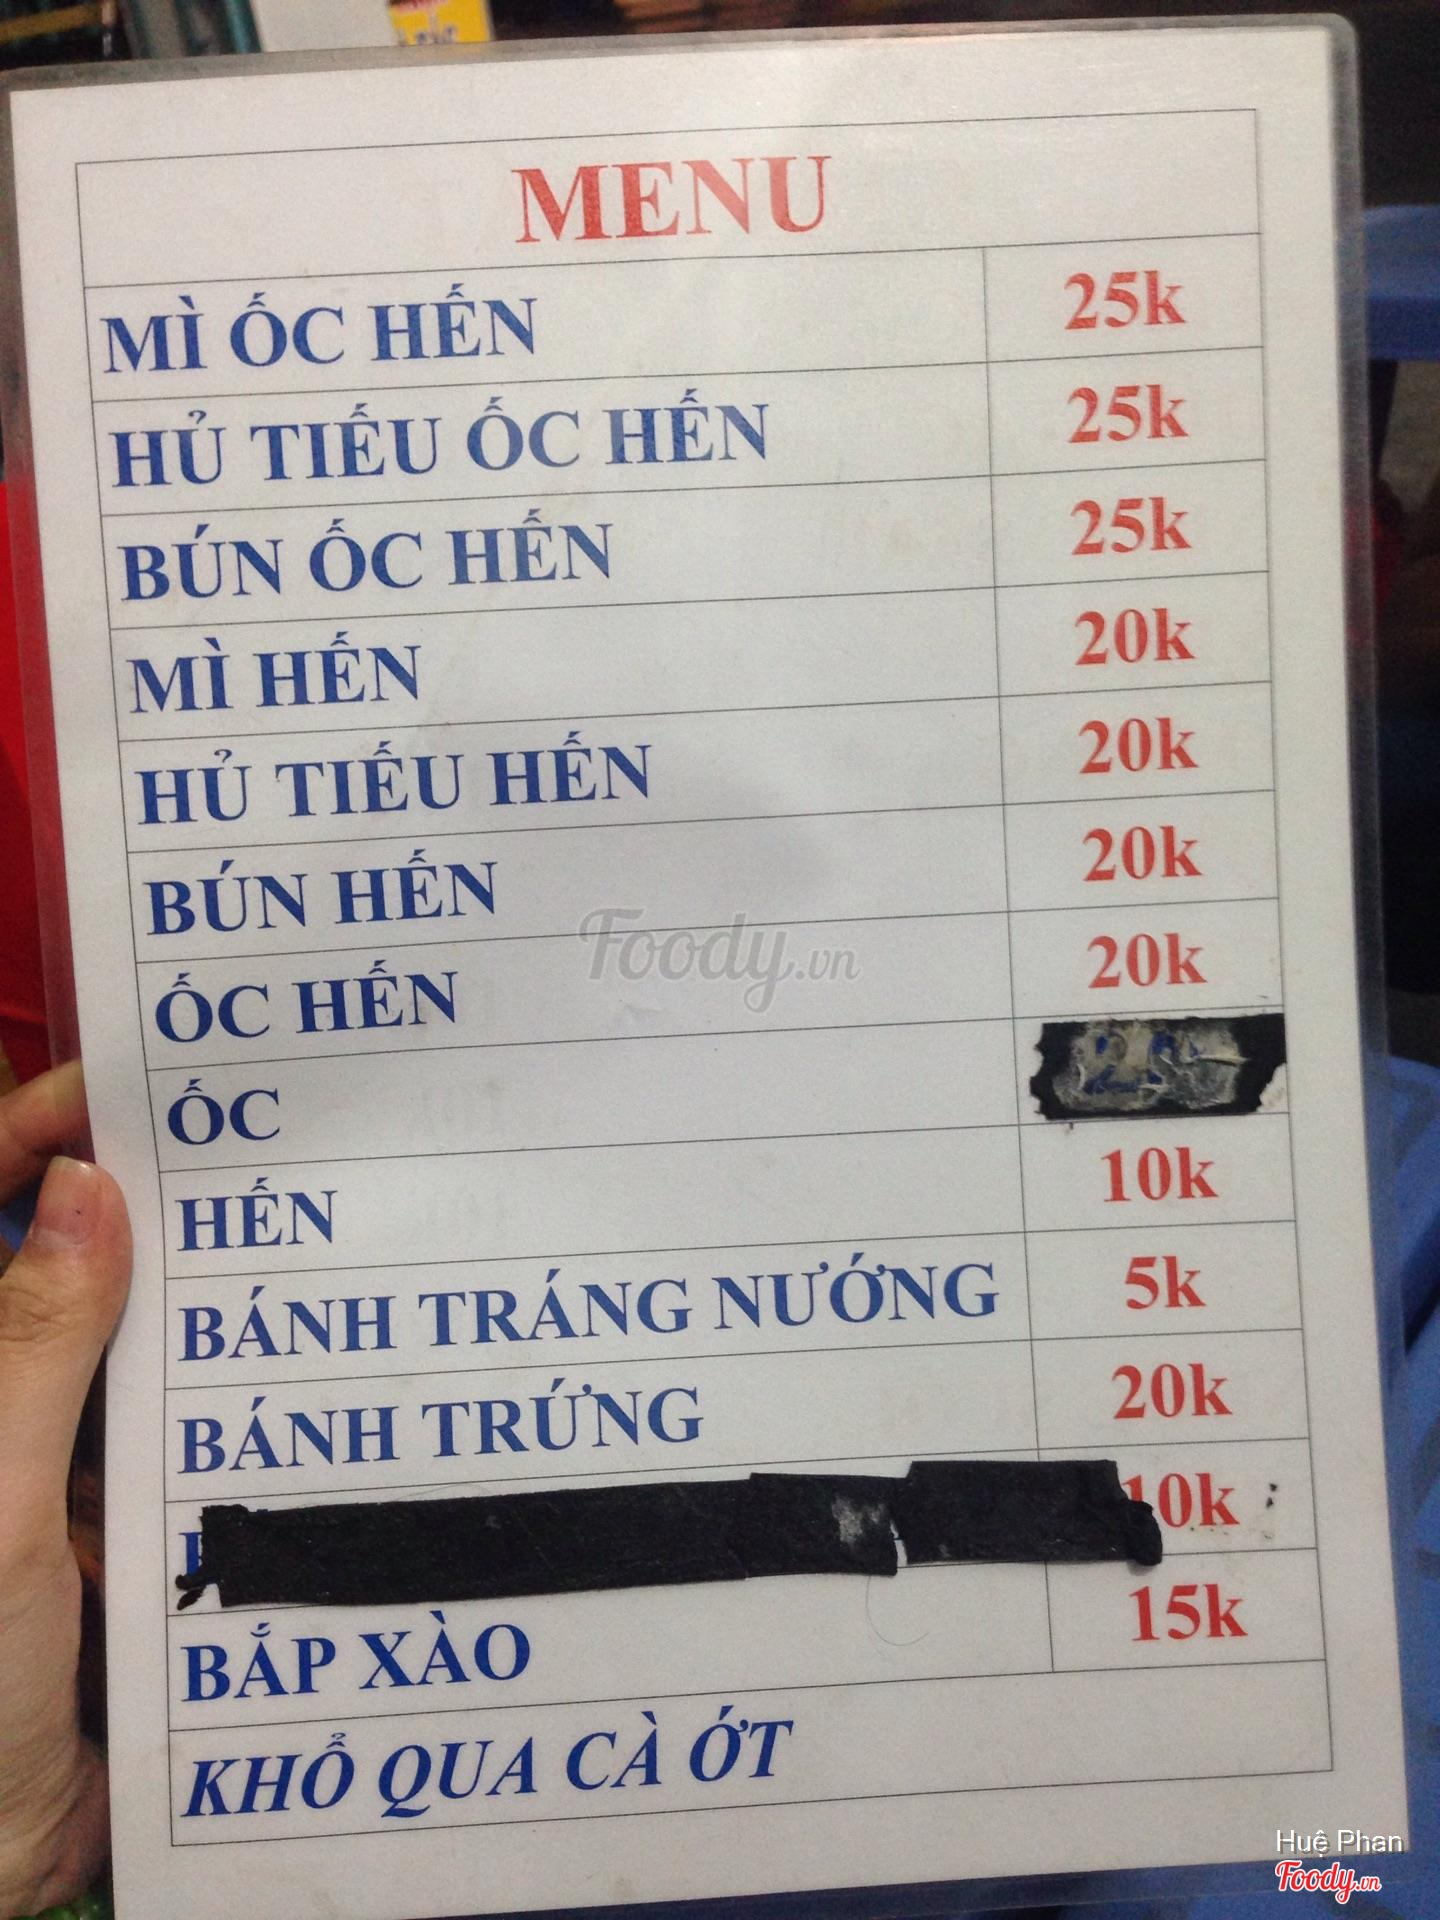 MENU
MÌ ỐC HẾN 25k
HỦ TIẾU ỐC HẾN 25k
BÚN ỐC HẾN 25k
MÌ HẾN 20k
HỦ TIẾU HẾN 20k
BÚN HẾN 20k
ỐC HẾN 20k
ỐC
HẾN 10k
BÁNH TRÁNG NƯỚNG 5k
BÁNH TRỨNG 20k
10k
BẮP XÀO 15k
KHỔ QUA CÀ ỚT
Foody.vn
Huệ Phan
Foody.vn